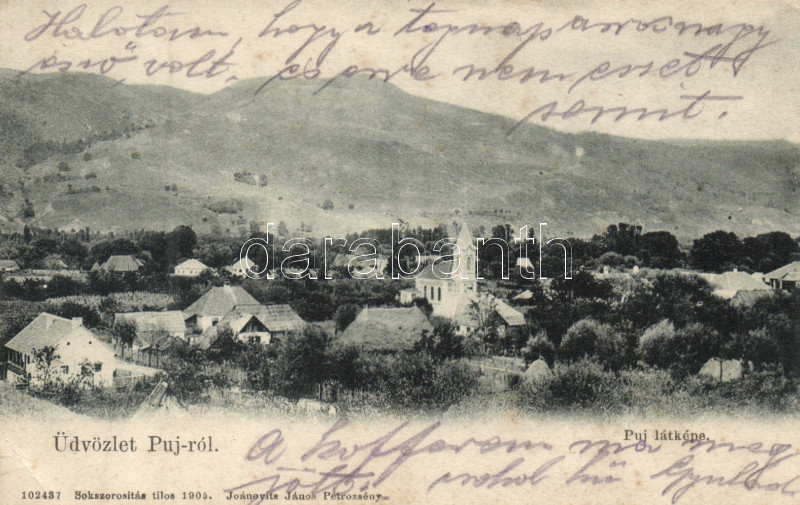 Halottam, hogy a tegnap arra nagy
eső volt, és erre nem esett
semmit.
darabanth
Üdvözlet Puj-ról.
Puj látképe.
A kofferom ma meg
jött. hű Gyulád
102437 Sokszorosítás tilos 1905. Joánovits János Petrozsény